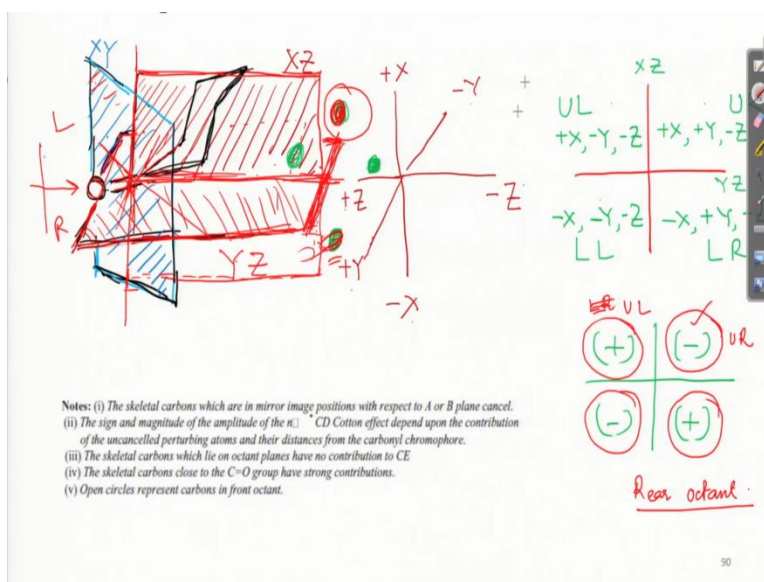 XY
XZ
L
R
YZ
+X
-Y
+Z
-Z
+Y
-X
XZ
UL
U
+X, -Y, -Z
+X, +Y, -Z
YZ
-X, -Y, -Z
-X, +Y, -
LL
LR
UL
(+)
(-)
UR
(-)
(+)
Rear octant.
Notes: (i) The skeletal carbons which are in mirror image positions with respect to A or B plane cancel.
(ii) The sign and magnitude of the amplitude of the n□ * CD Cotton effect depend upon the contribution
of the uncancelled perturbing atoms and their distances from the carbonyl chromophore.
(iii) The skeletal carbons which lie on octant planes have no contribution to CE
(iv) The skeletal carbons close to the C=O group have strong contributions.
(v) Open circles represent carbons in front octant.
90